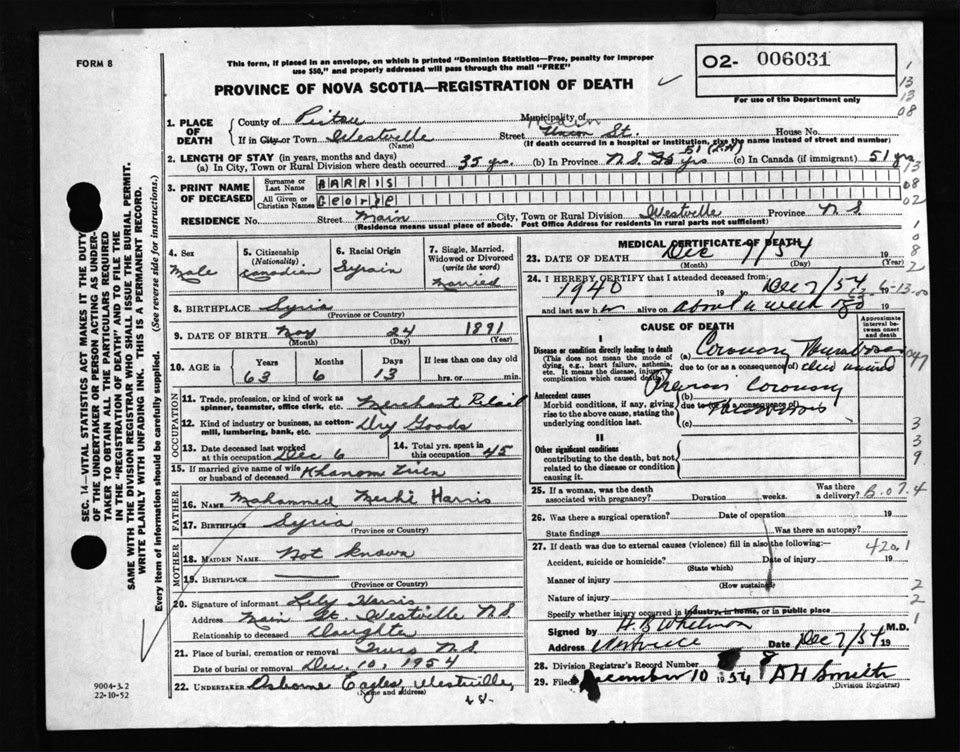 FORM 8
This form, if placed in an envelope, on which is printed "Dominion Statistics—Free, penalty for improper
use $50," and properly addressed will pass through the mail "FREE"
PROVINCE OF NOVA SCOTIA—REGISTRATION OF DEATH
O2- 006031
For use of the Department only
1. PLACE OF DEATH
County of Pictou Municipality of
If in City or Town Westville Street Main St. House No.
(Name) (If death occurred in a hospital or institution, give the name instead of street and number)
2. LENGTH OF STAY (in years, months and days)
(a) In City, Town or Rural Division where death occurred 35 yrs. (b) In Province N.S. 51 yrs (c) In Canada (if immigrant) 51 yrs
3. PRINT NAME OF DECEASED
Surname or Last Name HARRIS
All Given or Christian Names George
RESIDENCE No. Street Main City, Town or Rural Division Westville Province N S
(Residence means usual place of abode. Post Office Address for residents in rural parts not sufficient)
4. Sex Male
5. Citizenship (Nationality) Canadian
6. Racial Origin Syrain
7. Single, Married, Widowed or Divorced (write the word) Married
8. BIRTHPLACE Syria
(Province or Country)
9. DATE OF BIRTH May 24 1891
(Month) (Day) (Year)
10. AGE in Years 63 Months 6 Days 13 If less than one day old hrs. or min.
OCCUPATION
11. Trade, profession, or kind of work as spinner, teamster, office clerk, etc. Merchant Retail
12. Kind of industry or business, as cotton-mill, lumbering, bank, etc. Dry Goods
13. Date deceased last worked at this occupation Dec 6
14. Total yrs. spent in this occupation 45
15. If married give name of wife or husband of deceased Khanom
FATHER
16. Name Mohammed Harris
17. Birthplace Syria
(Province or Country)
MOTHER
18. Maiden Name Not Known
19. Birthplace
(Province or Country)
20. Signature of informant Lily Harris
Address Main St. Westville N.S.
Relationship to deceased Daughter
21. Place of burial, cremation or removal Truro N.S.
Date of burial or removal Dec. 10, 1954
22. UNDERTAKER Osborne Eagles, Westville,
(Name and address)
9004-3.2
22-10-52
MEDICAL CERTIFICATE OF DEATH
23. DATE OF DEATH Dec 7/54 19
(Month) (Day) (Year)
24. I HEREBY CERTIFY that I attended deceased from:
1940 19 to Dec 7/54
and last saw h alive on about a week ago
CAUSE OF DEATH
Approximate interval between onset and death
I
Disease or condition directly leading to death
(This does not mean the mode of dying, e.g., heart failure, asthenia, etc. It means the disease, injury, complication which caused death)
(a) Coronary Thrombosis
due to (or as a consequence of)
Antecedent causes
Morbid conditions, if any, giving rise to the above cause, stating the underlying condition last.
Previous Coronary
due to (or as a consequence of)
Thrombosis
(c)
II
Other significant conditions
contributing to the death, but not related to the disease or condition causing it.
25. If a woman, was the death associated with pregnancy? Duration weeks. Was there a delivery?
26. Was there a surgical operation? Date of operation 19
State findings Was there an autopsy?
27. If death was due to external causes (violence) fill in also the following:—
420.1
Accident, suicide or homicide? Date of injury 19
(State which)
Manner of injury
(How sustained)
Nature of injury
Specify whether injury occurred in industry, in home, or in public place
Signed by H. B. Whitman M.D.
Address Westville Date Dec 7/54 19
28. Division Registrar's Record Number 8
29. Filed December 10 1954 A H Smith
(Division Registrar)
SEC. 14—VITAL STATISTICS ACT MAKES IT THE DUTY
OF THE UNDERTAKER OR PERSON ACTING AS UNDER-
TAKER TO OBTAIN ALL THE PARTICULARS REQUIRED
IN THE "REGISTRATION OF DEATH" AND TO FILE THE
SAME WITH THE DIVISION REGISTRAR WHO SHALL ISSUE THE BURIAL PERMIT.
WRITE PLAINLY WITH UNFADING INK. THIS IS A PERMANENT RECORD.
Every item of information should be carefully supplied. (See reverse side for instructions.)